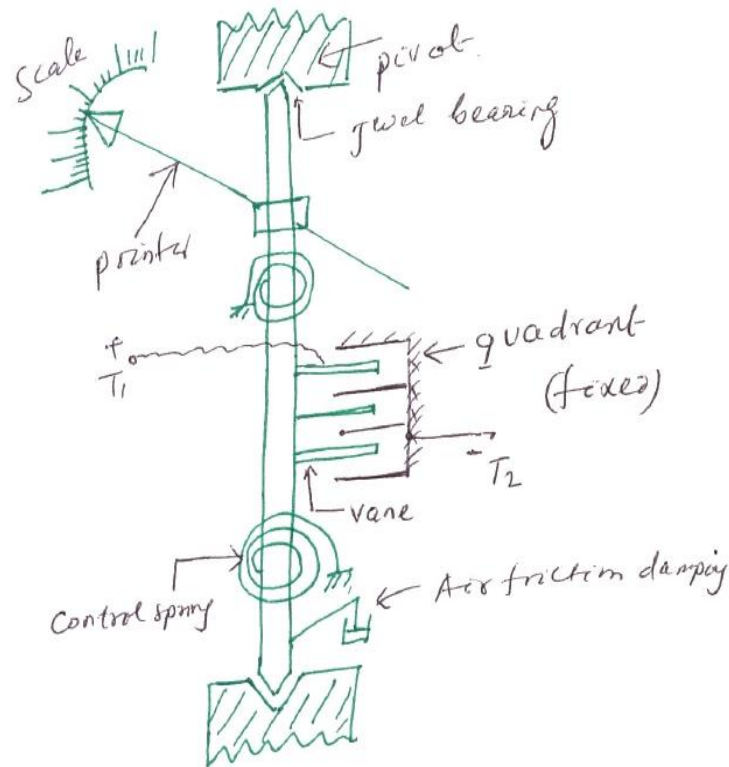 Scale
pivot
Jwel bearing
pointer
+
T1
quadrant
(fixed)
-
T2
vane
Control spring
Air friction damping